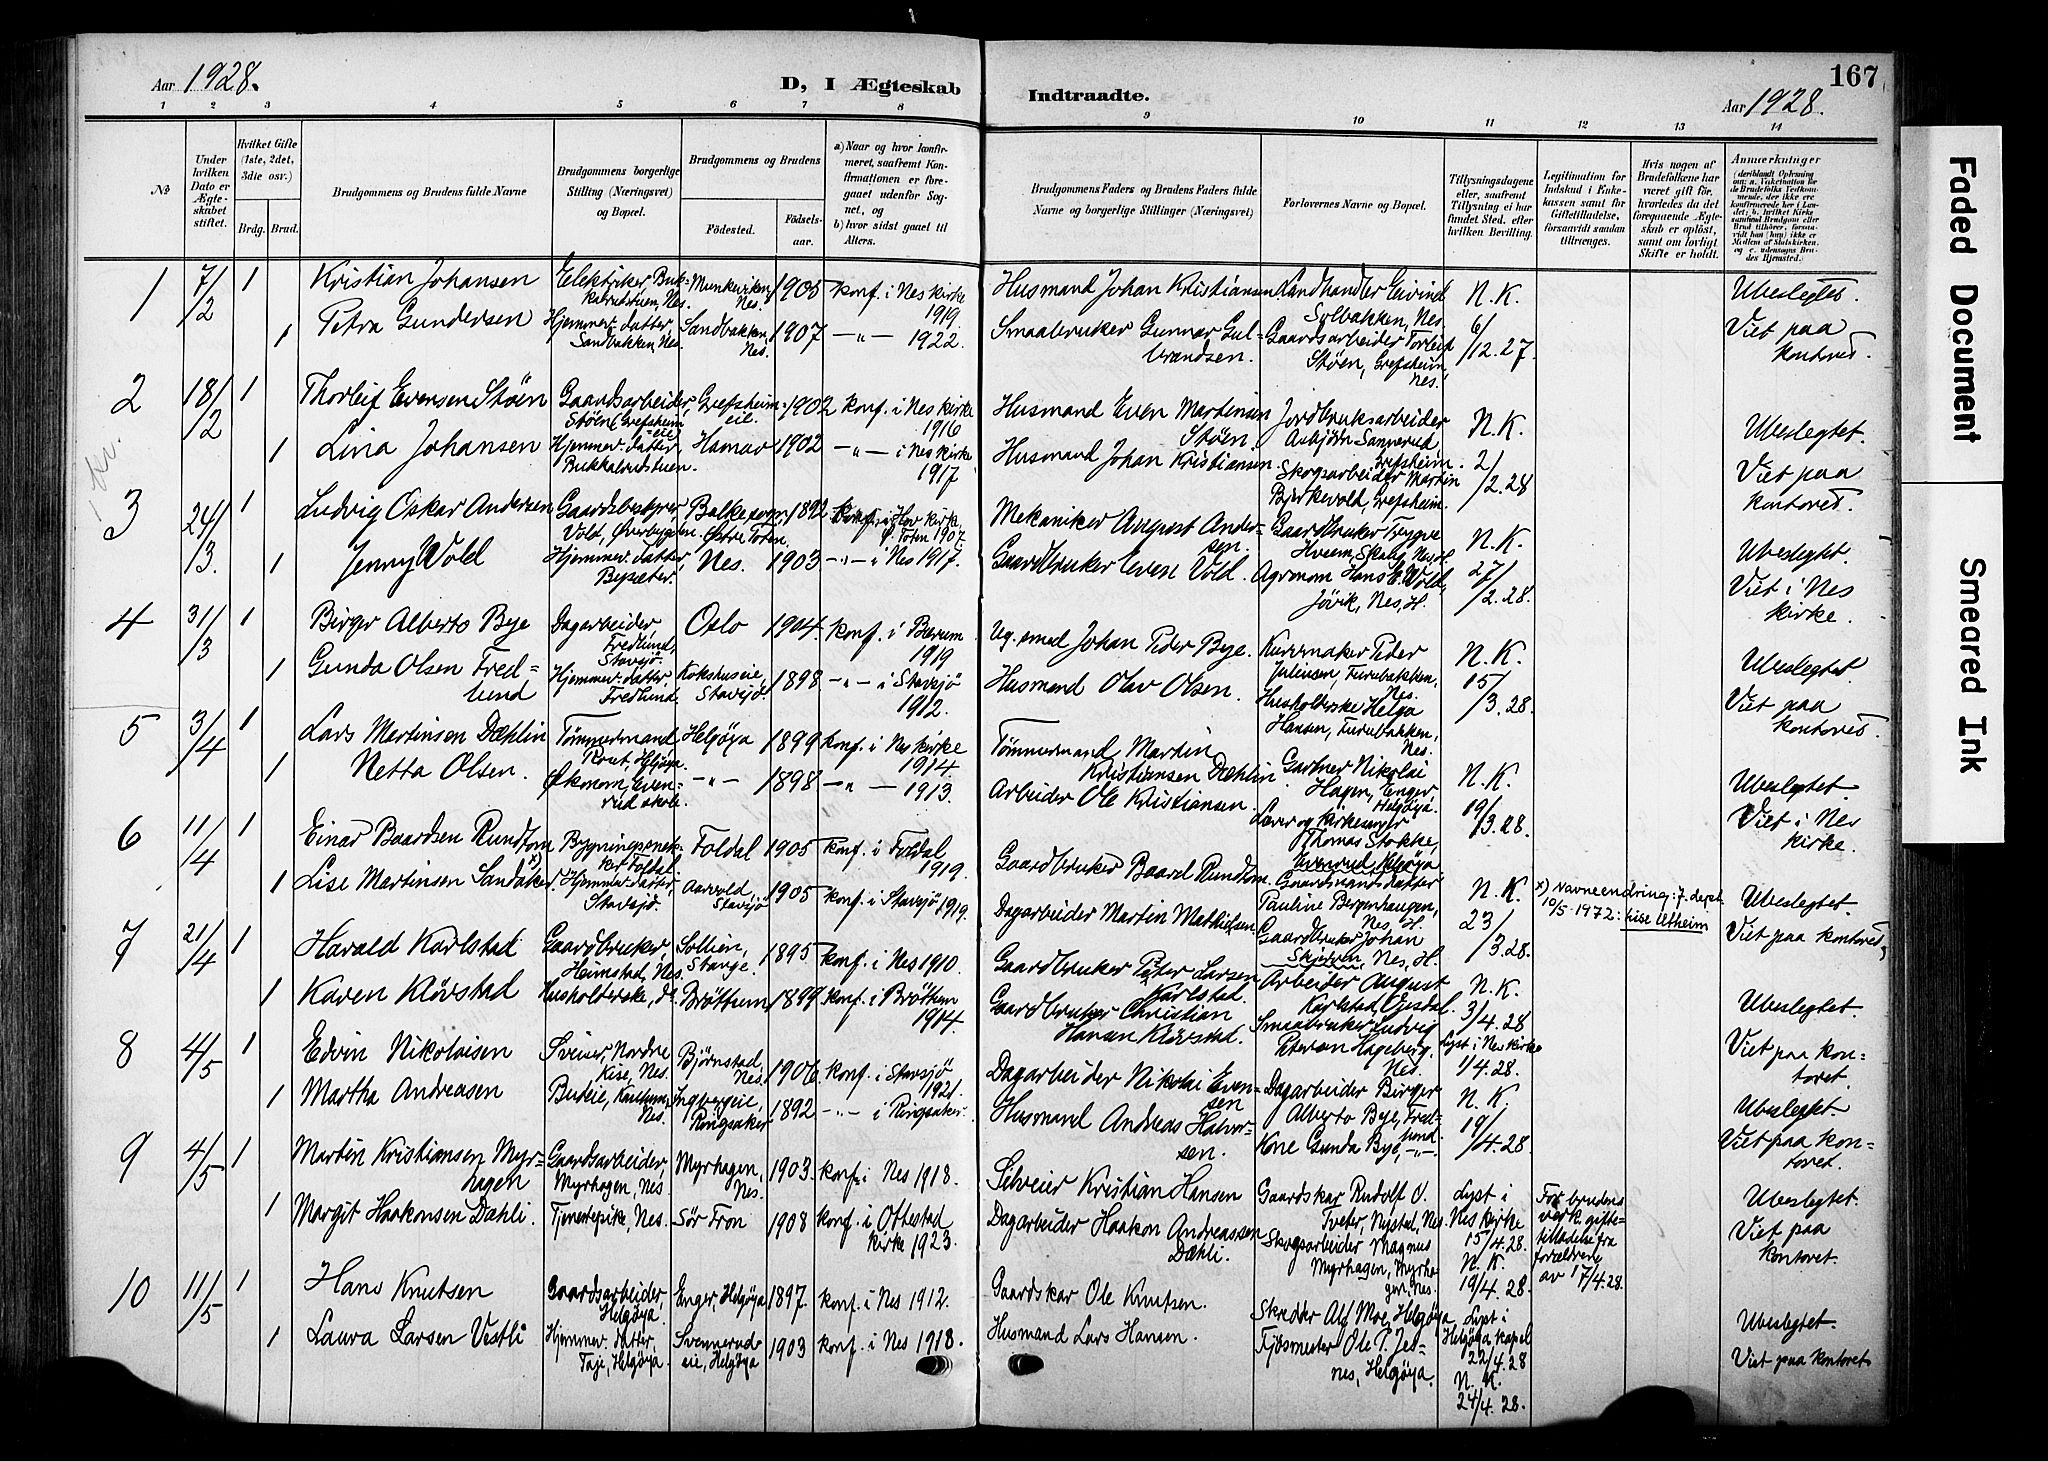 Aar 1928.
D, I Ægteskab
Indtraadte.
167
Aar 1928.
1 2 3 4 5 6 7 8 9 10 11 12 13 14
No
Under hvilken Dato er Ægteskabet stiftet.
Hvilket Gifte (1ste, 2det, 3die osv.)
Brdg. Brud.
Brudgommens og Brudens fulde Navne
Brudgommens borgerlige Stilling (Næringsvei) og Bopæl.
Brudgommens og Brudens
Fødested. Fødselsaar.
a) Naar og hvor konfirmeret, saafremt Konfirmationen er foregaaet udenfor Sognet, og
b) hvor sidst gaaet til Alters.
Brudgommens Faders og Brudens Faders fulde Navne og borgerlige Stillinger (Næringsvei)
Forlovernes Navne og Bopæl.
Tillysningsdagene eller, saafremt Tillysning ei har fundet Sted, efter hvilken Bevilling.
Legitimation for Indskud i Enkekassen samt for Giftetilladelse, forsaavidt saadan tiltrænges.
Hvis nogen af Brudefolkene har været gift før, hvorledes da det foregaaende Ægteskab er opløst, samt om lovligt Skifte er holdt.
Anmærkninger
1 7/2 1 Kristian Johansen Elektriker, Munkeviken, Nes. 1905 konf. i Nes kirke 1919 Husmand Johan Kristiansen Landhandler Eivind Solbakken, Nes. N.K. Ubeslegtet.
1 Petra Gundersen Hjemmev. datter, Sandbakken, Nes. Sandbakken, Nes. 1907 -"- 1922. Smaabruker Gunnar Gulbrandsen. Gaardsarbeider Torleif Støen, Grefsheim, Nes. 6/12.27 Viet paa kontoret.
2 18/2 1 Thorleif Evensen Støen Gaardsarbeider, Støen, Grefsheimeie Grefsheimeie. 1902 konf. i Nes kirke 1916 Husmand Even Martinsen Støen. Jordbruksarbeider Asbjørn Sannerud Grefsheim. N.K. Ubeslegtet.
1 Lina Johansen Hjemmev. datter Hamar 1902 -"- i Nes kirke 1917 Husmand Johan Kristiansen. Skogsarbeider Martin Bjerkevold, Grefsheim. 2/2.28 Viet paa kontoret.
3 24/3. 1 Ludvig Oskar Andersen Gaardsbestyrer Vold, Øverbygden. Østre Toten. 1892 konf. i Hov kirke, Ø. Toten 1907. Mekaniker August Andersen. Gaardbruker Trygve Hveem, N.K. Ubeslegtet
1 Jenny Vold Hjemmev. datter, Bysæter. Nes. 1903 -"- i Nes 1917. Gaardbruker Even Vold. Agronom Hans E. Vold, Jøvik, Nes, H. 27/2.28. Viet i Nes kirke.
4 31/3 1 Birger Alberto Bye Dagarbeider Fredlund, Stavsjø. Oslo 1904. konf. i Bærum 1919 Johan Peder Bye. Kurvmaker Peder Juliussen, Furubakken, Nes. N.K. Ubeslegtet.
1 Gunda Olsen Fredlund Hjemmev. datter, Fredlund. Kokshuseie, Stavsjø. 1898 -"- i Stavsjø 1912. Husmand Olav Olsen. Husholderske Helga Hansen, Furubakken, Nes. 15/3.28. Viet paa kontoret.
5 3/4 1 Lars Martinsen Dæhlin Tømmermand Helgøya 1899 konf. i Nes kirke 1914. Tømmermand Martin Kristiansen Dæhlin Gartner Nikolai Hagen, Enger Helgøya. N.K. Ubeslegtet.
1 Netta Olsen. Økonom, Evenrud skole. -"- 1898 -"- 1913. Arbeider Ole Kristiansen. Lærer og Kirkesanger Thomas Stokke, Evenrud, Helgøya 19/3.28. Viet i Nes kirke.
6 11/4 1 Einar Baardsen Rundtom Foldal Foldal 1905 konf. i Foldal 1919. Gaardbruker Baard Rundtom. Gaardmandsdatter Pauline Bergenhaugen, Nes, H. N.K. Ubeslegtet.
1 Lise Martinsen Sandaker x) Hjemmev. datter, Stavsjø. Aarvold, Stavsjø 1905 konf. i Stavsjø 1919. Dagarbeider Martin Mathiesen. Gaardbruker Johan Skjerven, Nes, H. 23/3.28. Viet paa kontoret.
x) Navneendring: J. dept. 10/5-1972: Lise Utheim
7 21/4 1 Harald Karlstad Gaardbruker, Heimstad, Nes. Sollien, Stange. 1895 konf. i Nes 1910. Gaardbruker Peter Larsen Karlstad. Arbeider August Karlstad, N.K. 3/4.28 Ubeslegtet.
1 Karen Kløvstad Husholderske, Brøttum 1899 konf. i Brøttum 1914. Gaardbruker Christian Hansen Kløvstad. Smaabruker Ludvig Petersen Hageberg. Nes. Lyst i Nes kirke 1/4.28. Viet paa kontoret.
8 4/5 1 Edvin Nikolaisen Sveiser, Nordre Kise, Nes. Bjørnstad, Nes. 1906 konf. i Stavsjø 1921. Dagarbeider Nikolai Evensen Dagarbeider Birger Alberto Bye, Fredlund. N.K. Ubeslegtet.
1 Martha Andreasen Buteie, Nes. Ingbergeie, Ringsaker 1892 -"- i Ringsaker. Husmand Andreas Halvorsen. Kone Gunda Bye, -"- 19/4.28. Viet paa kontoret.
9 4/5 1 Martin Kristiansen Myrhagen Gaardsarbeider, Myrhagen, Nes Myrhagen, Nes. 1903 konf. i Nes 1918. Selveier Kristian Hansen Gaardskar Rudolf O. Tveter, Nystad, Nes. Lyst i Nes kirke 15/4.28. Ubeslegtet.
1 Margit Haakonsen Dæhli. Tjenestepike, Nes. Sør Fron 1908 konf. i Ottestad kirke 1923. Dagarbeider Haakon Andreassen Dæhli. Skogsarbeider Magnus Myrhagen, Myrhagen, Nes. N.K. 19/4.28 For brudens verk. giftetilladelse fra forældrene av 17/4.28. Viet paa kontoret.
10 11/5 1 Hans Knutsen Gaardsarbeider, Helgøya. Enger, Helgøya 1897. konf. i Nes 1912. Gaardskar Ole Knutsen. Skredder Alf Moe, Helgøya, Lyst i Helgøya kapel 22/4.28 Ubeslegtet.
1 Laura Larsen Vestli Hjemmev. datter, Taje, Helgøya. Svennerudeie, Helgøya 1903 konf. i Nes 1918. Husmand Lars Hansen. Fjøsmester Ole P. Jesnes, Helgøya. N.K. 24/4.28. Viet paa kontoret
Faded Document
Smeared Ink